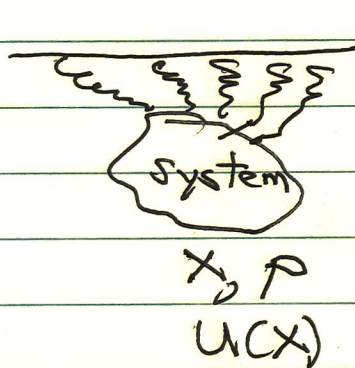 system
x, p
U(x)